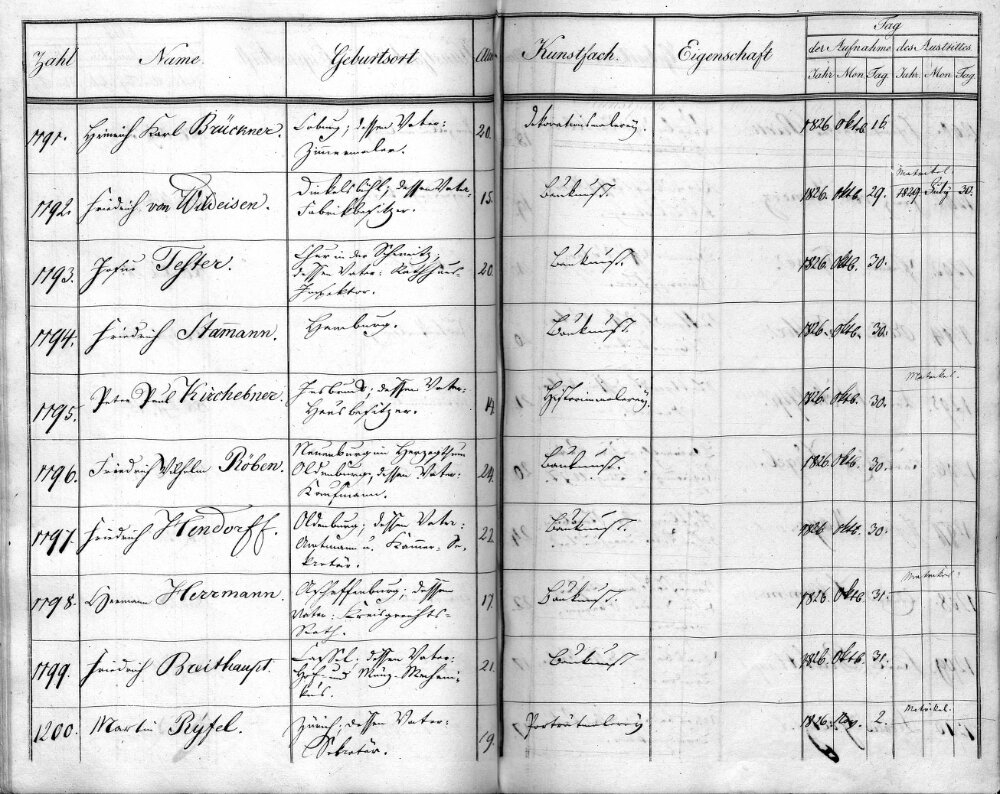 Tag
Zahl Name. Geburtsort Alter Kunstfach. Eigenschaft der Aufnahme des Austrittes
Jahr Mon Tag Jahr. Mon. Tag.
1791. Heinrich Karl Brückner. Coburg; dessen Vater: 20. Dekorationsmalerey. 1826 Oktb. 16.
Zimmermaler.
Matrikel.
1792. Friedrich von Weveisen. Dinkelsbühl; dessen Vater: 15. Baukunst. 1826. Oktb. 29. 1829 July 30.
Fabrikbesitzer.
1793. Tester. Chur in der Schweiz, 20. Baukunst. 1826. Oktb. 30.
dessen Vater: Rathhaus
Inspektor.
1794. Friedrich Stammann. Hamburg. Baukunst. 1826. Oktb. 30.
Matrikel.
1795. Peter Paul Kirchebner. Insbruck; dessen Vater: 19. Historienmalerey. 1826. Oktb. 30.
Hausbesitzer.
1796. Friedrich Wilhelm Röben. Neuenburg im Herzogthum 24. Baukunst. 1826. Oktb. 30.
Oldenburg; dessen Vater:
Kaufmann.
1797. Friedrich Hendorff. Oldenburg; dessen Vater: 22. Baukunst. 1826. Oktb. 30.
Amtmann u. Kammer-Se-
kretär.
Matrikel.
1798. Hermann Herrmann. Aschaffenburg; dessen 17. Baukunst. 1826. Oktb. 31.
Vater: Kreisgerichts-
Rath.
1799. Friedrich Breithaupt. Cassel; dessen Vater: 21. Baukunst. 1826. Oktb. 31.
Hof- und Münz-Mechani-
kus.
Matrikel.
1200. Martin Ryfel. Zürich; dessen Vater: 19. Porträtmalerey 1826. Nov. 2.
Sekretär.